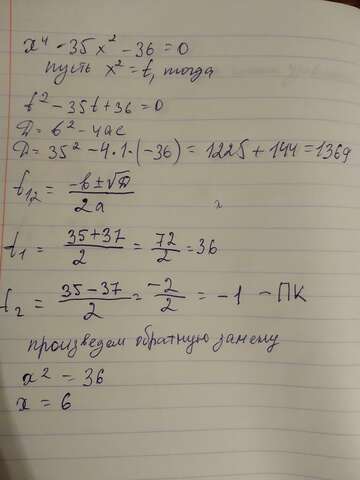 x⁴ - 35x² - 36 = 0
пусть x² = t, тогда
t² - 35t + 36 = 0
D = b² - 4ac
D = 35² - 4·1·(-36) = 1225 + 144 = 1369
t₁,₂ = -b±√D / 2a
t₁ = 35+37 / 2 = 72 / 2 = 36
t₂ = 35-37 / 2 = -2 / 2 = -1 - ПК
произведем обратную замену
x² = 36
x = 6